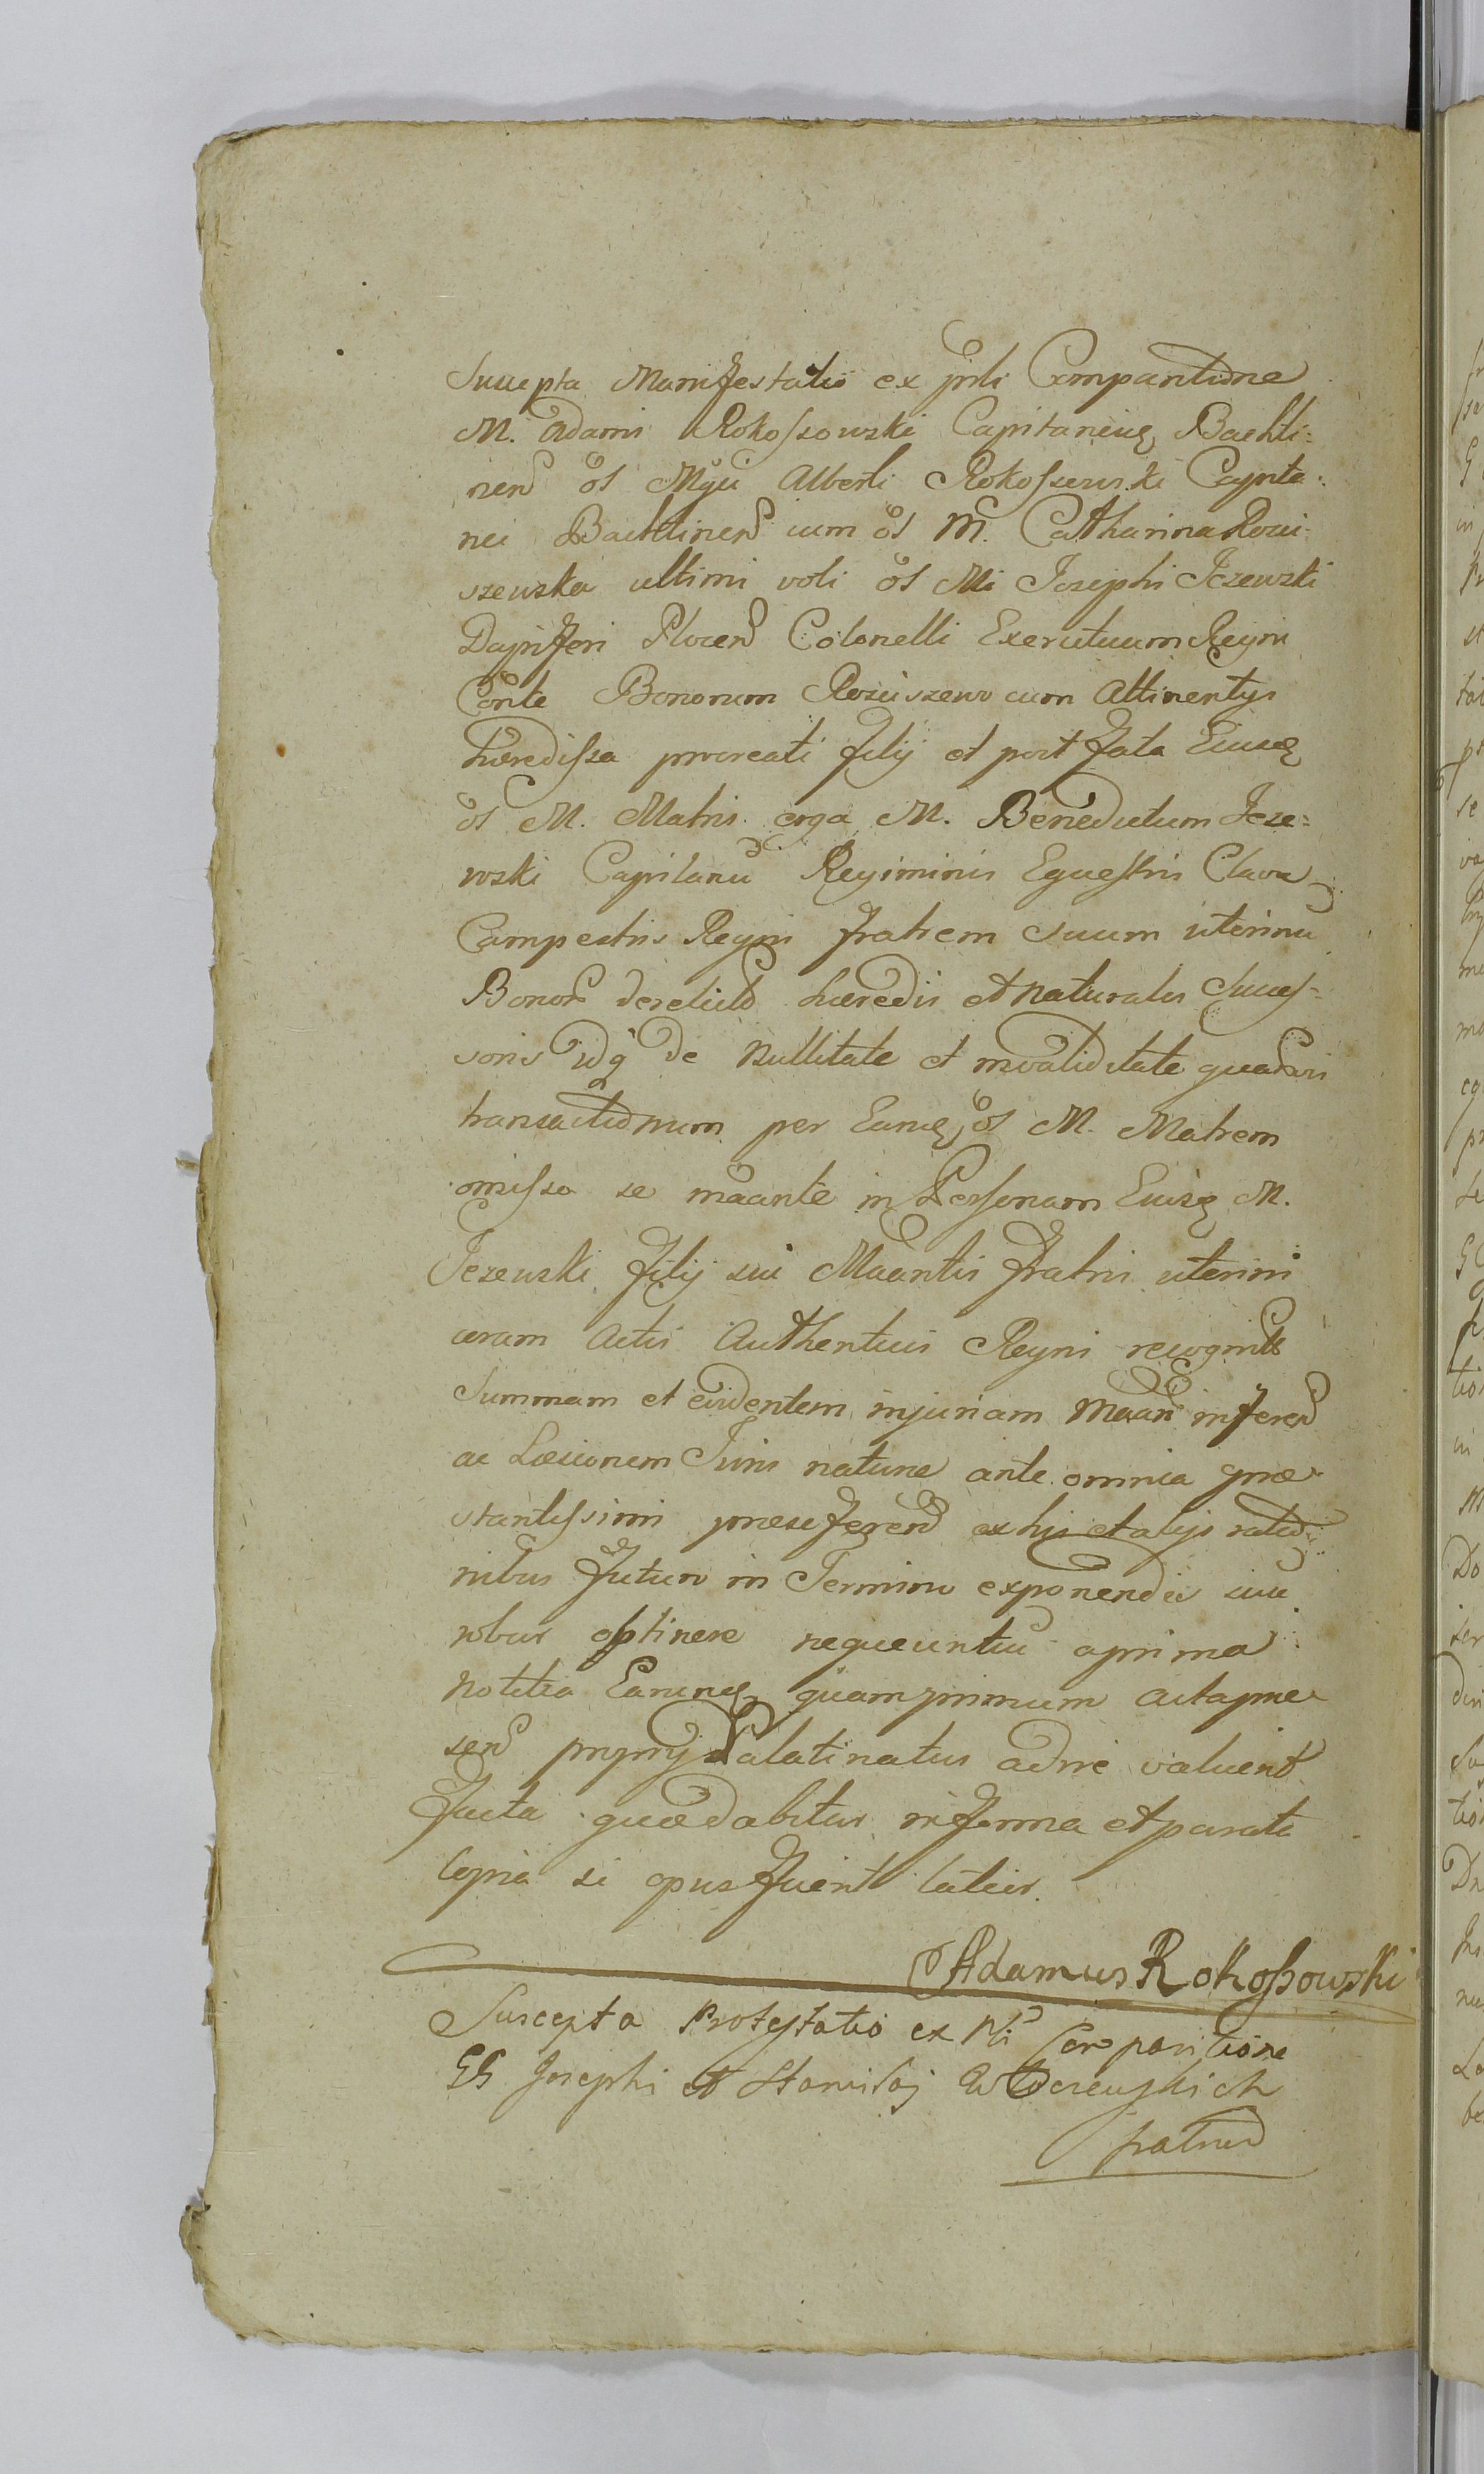 Suscepta Manifestatio ex psnti Comparitione
M. Adami Rokossowski Capitaneis Bachti=
nen os Mgci Alberti Rokossowski Capita=
nei Bachtinen cum os M. Catharina Rosci=
szewska ultimi voti os Mi Josephi Jezewski
Dapiferi Plocen Colonelli Exercituum Regni
Conte Bonorum Rosciszewo cum Attinentijs
hæredissa procreati filij et post fata Eiusq
os M. Matris erga M. Benedictum Jeze=
wski Capitanu Regiminis Equestris Clavæ
Campestris Regni fratrem suum uterinu
Bonor derelict hæredis et naturalis Succes=
soris idq de Nullitate et invaliditate quarvis
transactionum per Eandq os M. Matrem
omisso se mãante in Personam Eiusq M.
Jezewski filij sui Maantis fratris uterini
coram Actis Authenticis Regni recognit
Summam et evidentem injuriam Maan inferen
ac Læsionem Juris naturæ ante omnia præ=
stantissimi præseferen ex his et alijs ratio=
nibus futuro in Termino exponendis suu
robur optinere nequeuntiu aprima
Notitia Earundq quamprimum Acta præ
sen proprij Palatinatus adire valuerit
facta quæ dabitur in forma et parata
copia si opus fuerit latius.
Adamus Rokossowski
Suscepta Protestatio ex Pti Comparitione
GG Josephi et Stanislaj
fratrud